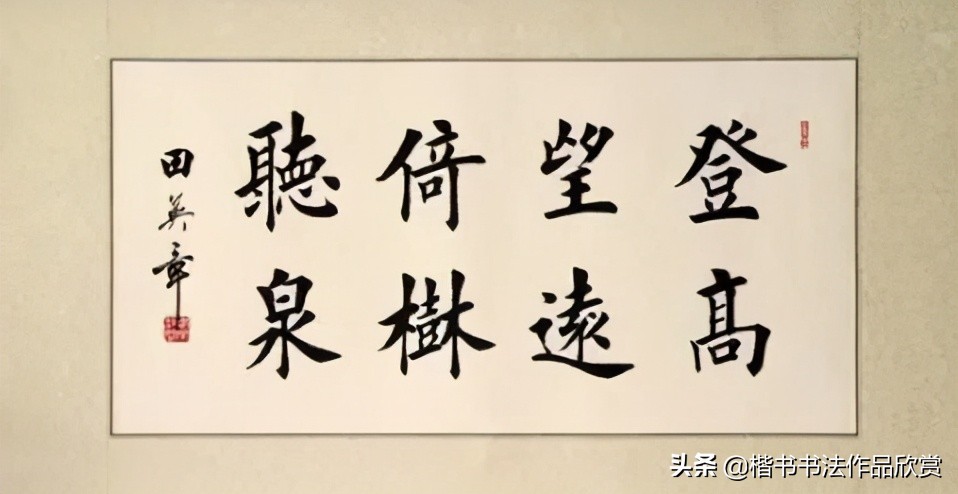 登高
望遠
倚樹
聽泉
田英章
头条 @楷书书法作品欣赏